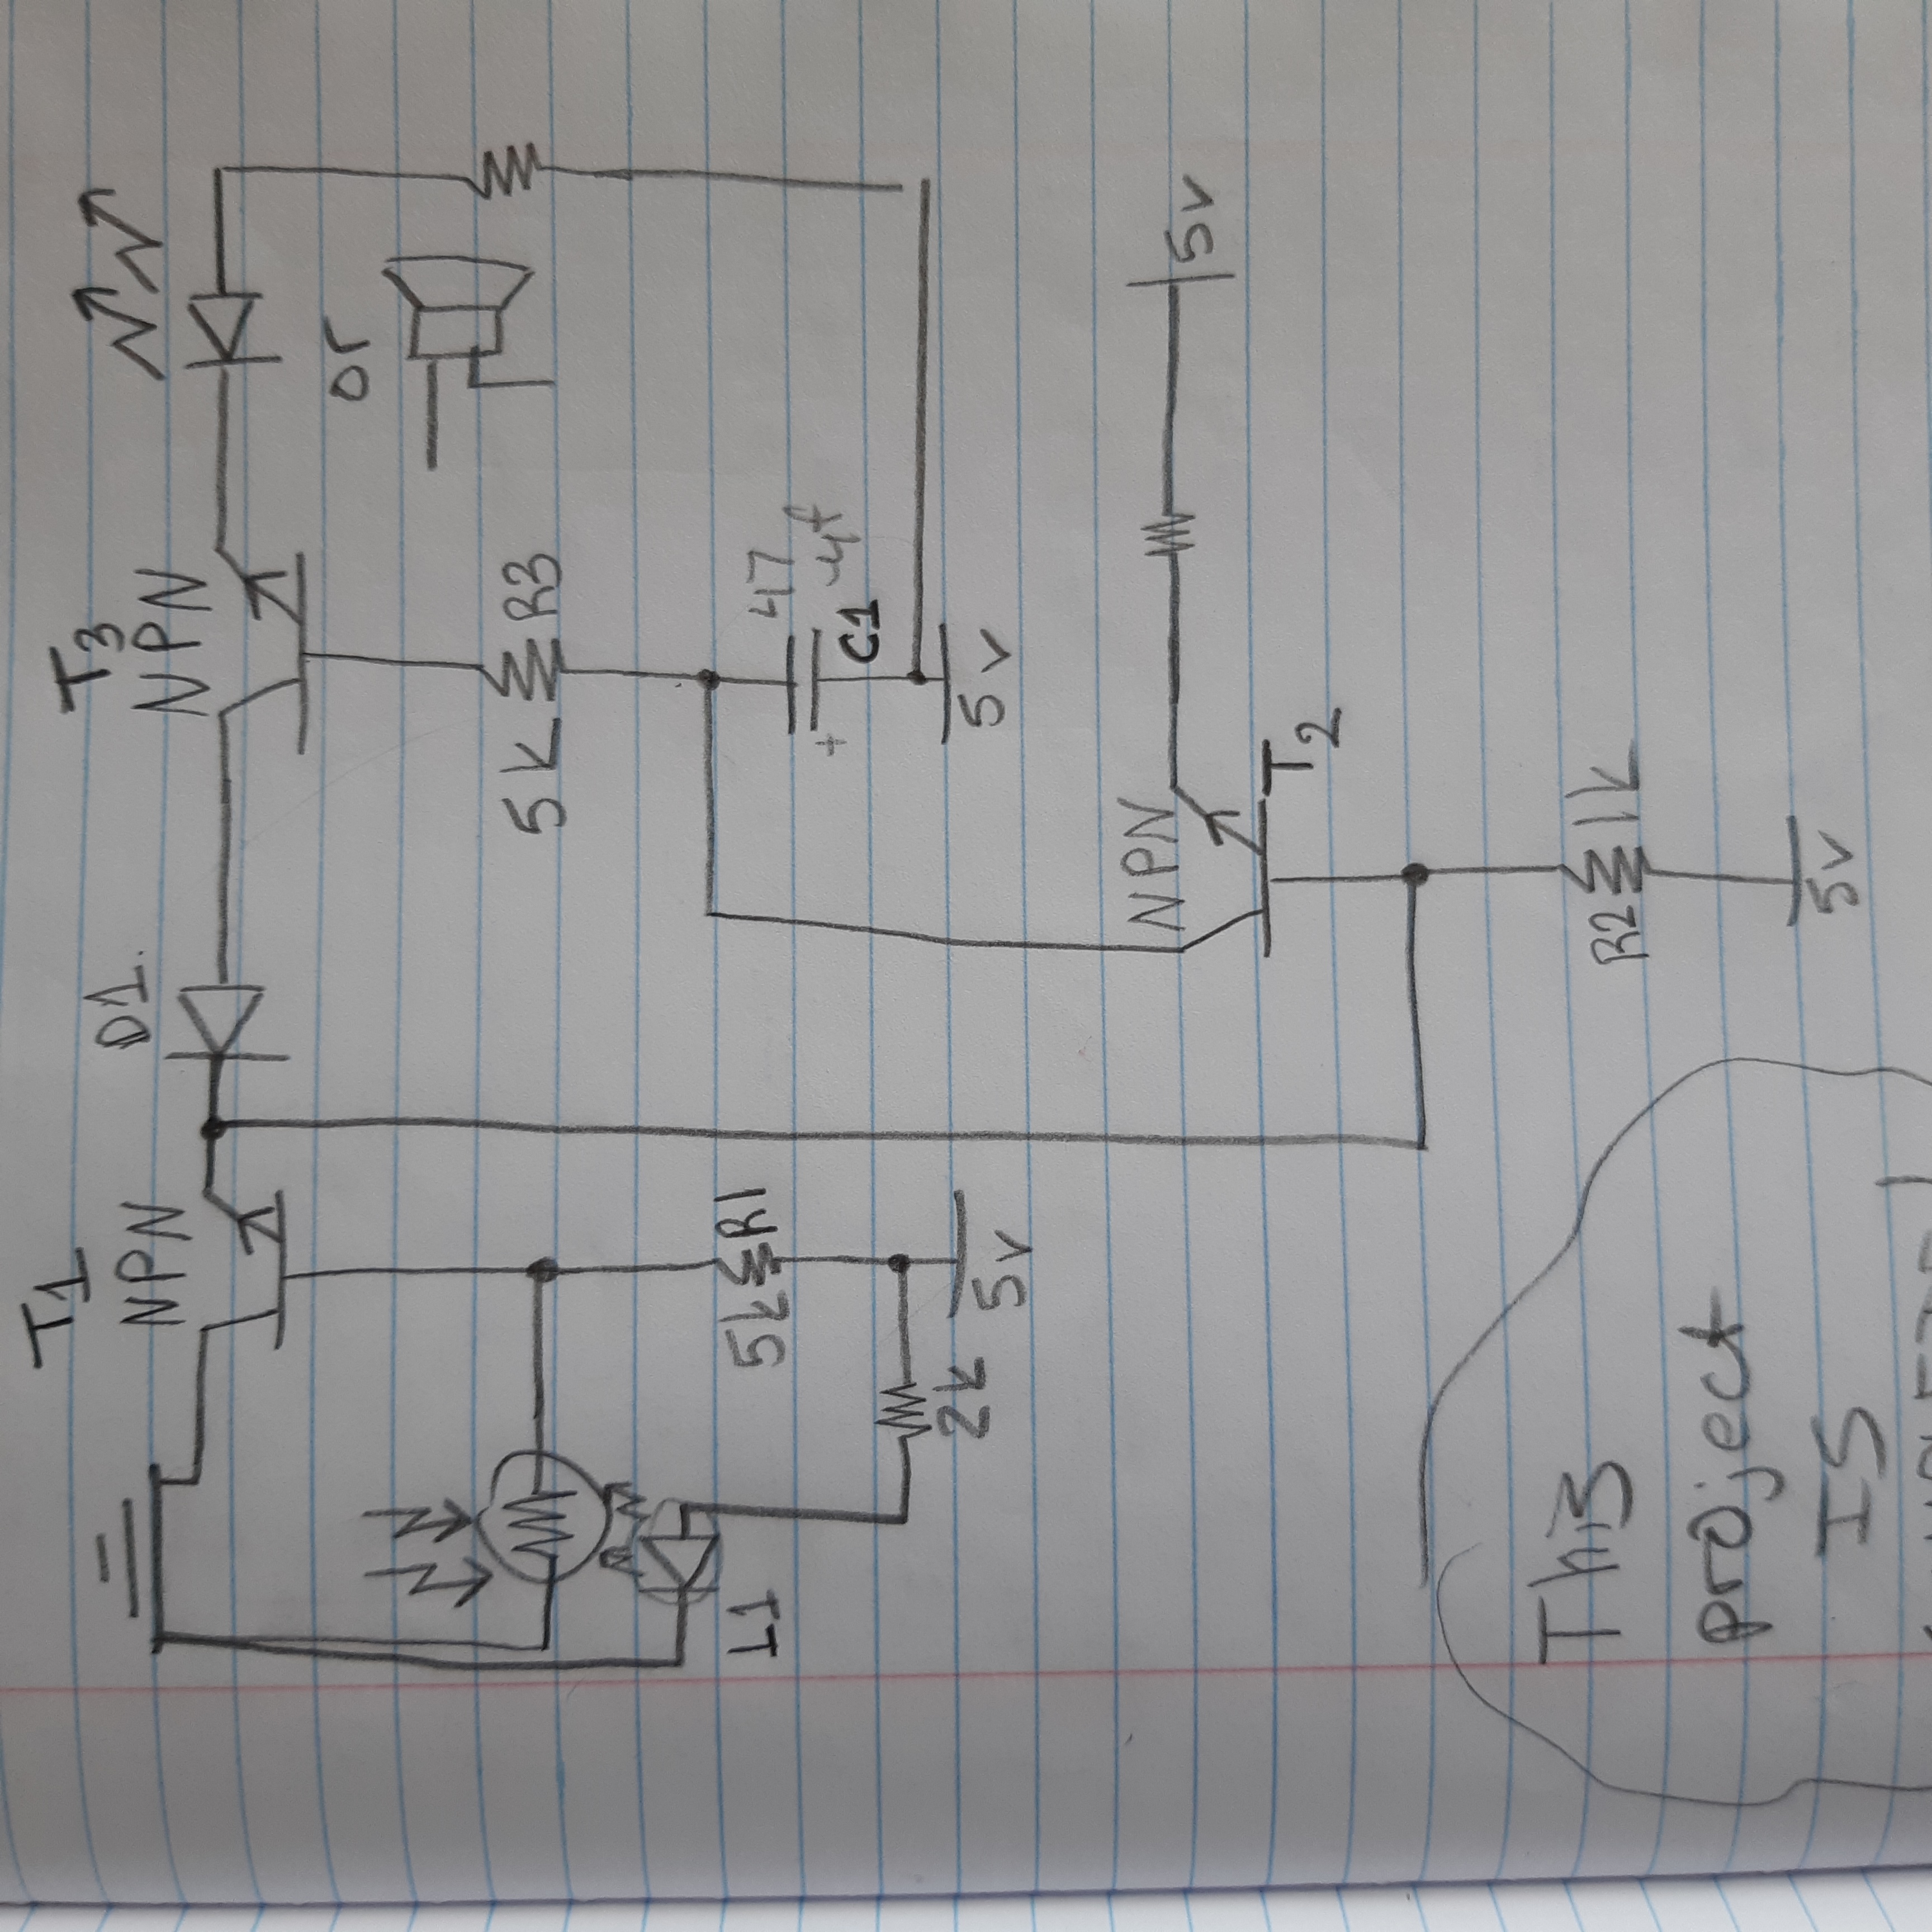 T1
NPN
D1.
T3
NPN
or
5k R3
L1
5k R1
47
+
C1
2k
5v
5v
NPN
5v
T2
R2 1k
5v
This
project
IS